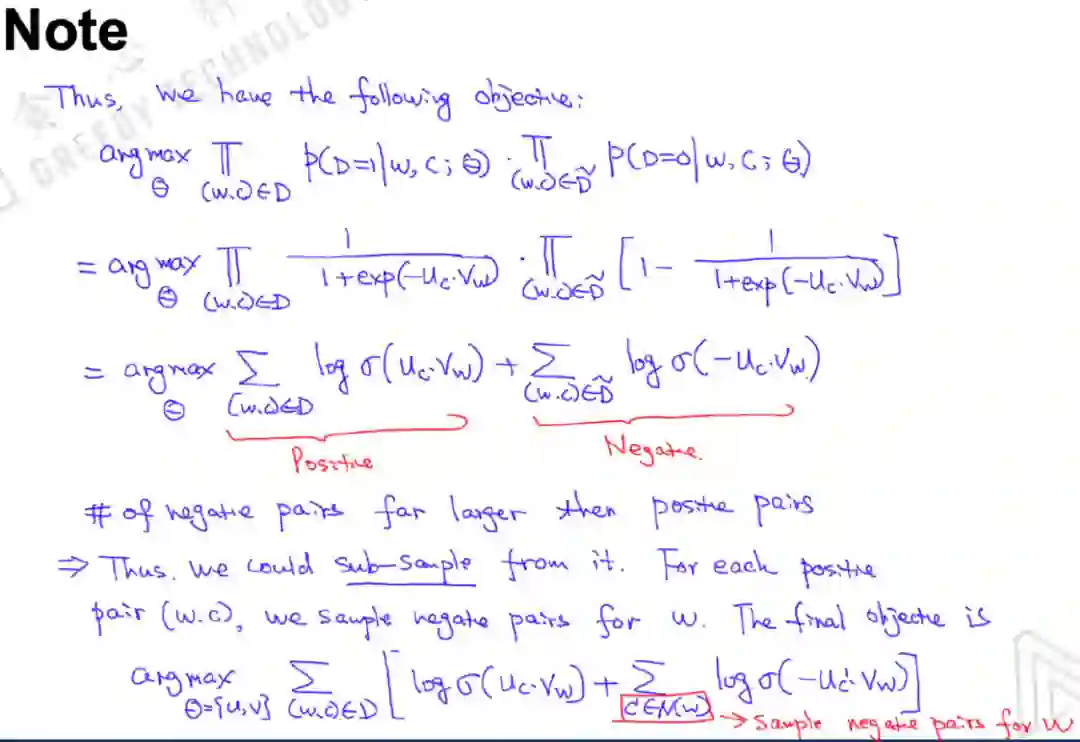 Note
Thus, we have the following objective:
argmax_θ ∏_{(w,c)∈D} p(D=1|w,c;θ) · ∏_{(w,c)∈D̃} p(D=0|w,c;θ)
= argmax_θ ∏_{(w,c)∈D} 1/(1+exp(-U_c·V_w)) · ∏_{(w,c)∈D̃} [1 - 1/(1+exp(-U_c·V_w))]
= argmax_θ ∑_{(w,c)∈D} log σ(U_c·V_w) + ∑_{(w,c)∈D̃} log σ(-U_c·V_w)
Positive Negative.
# of negative pairs far larger then positive pairs
⇒ Thus, we could sub-sample from it. For each positive
pair (w,c), we sample negative pairs for w. The final objective is
argmax_{θ={u,v}} ∑_{(w,c)∈D} [log σ(U_c·V_w) + ∑_{c'∈N(w)} log σ(-U_c'·V_w)]
→ sample negative pairs for w
GREEDY TECHNOLOGY